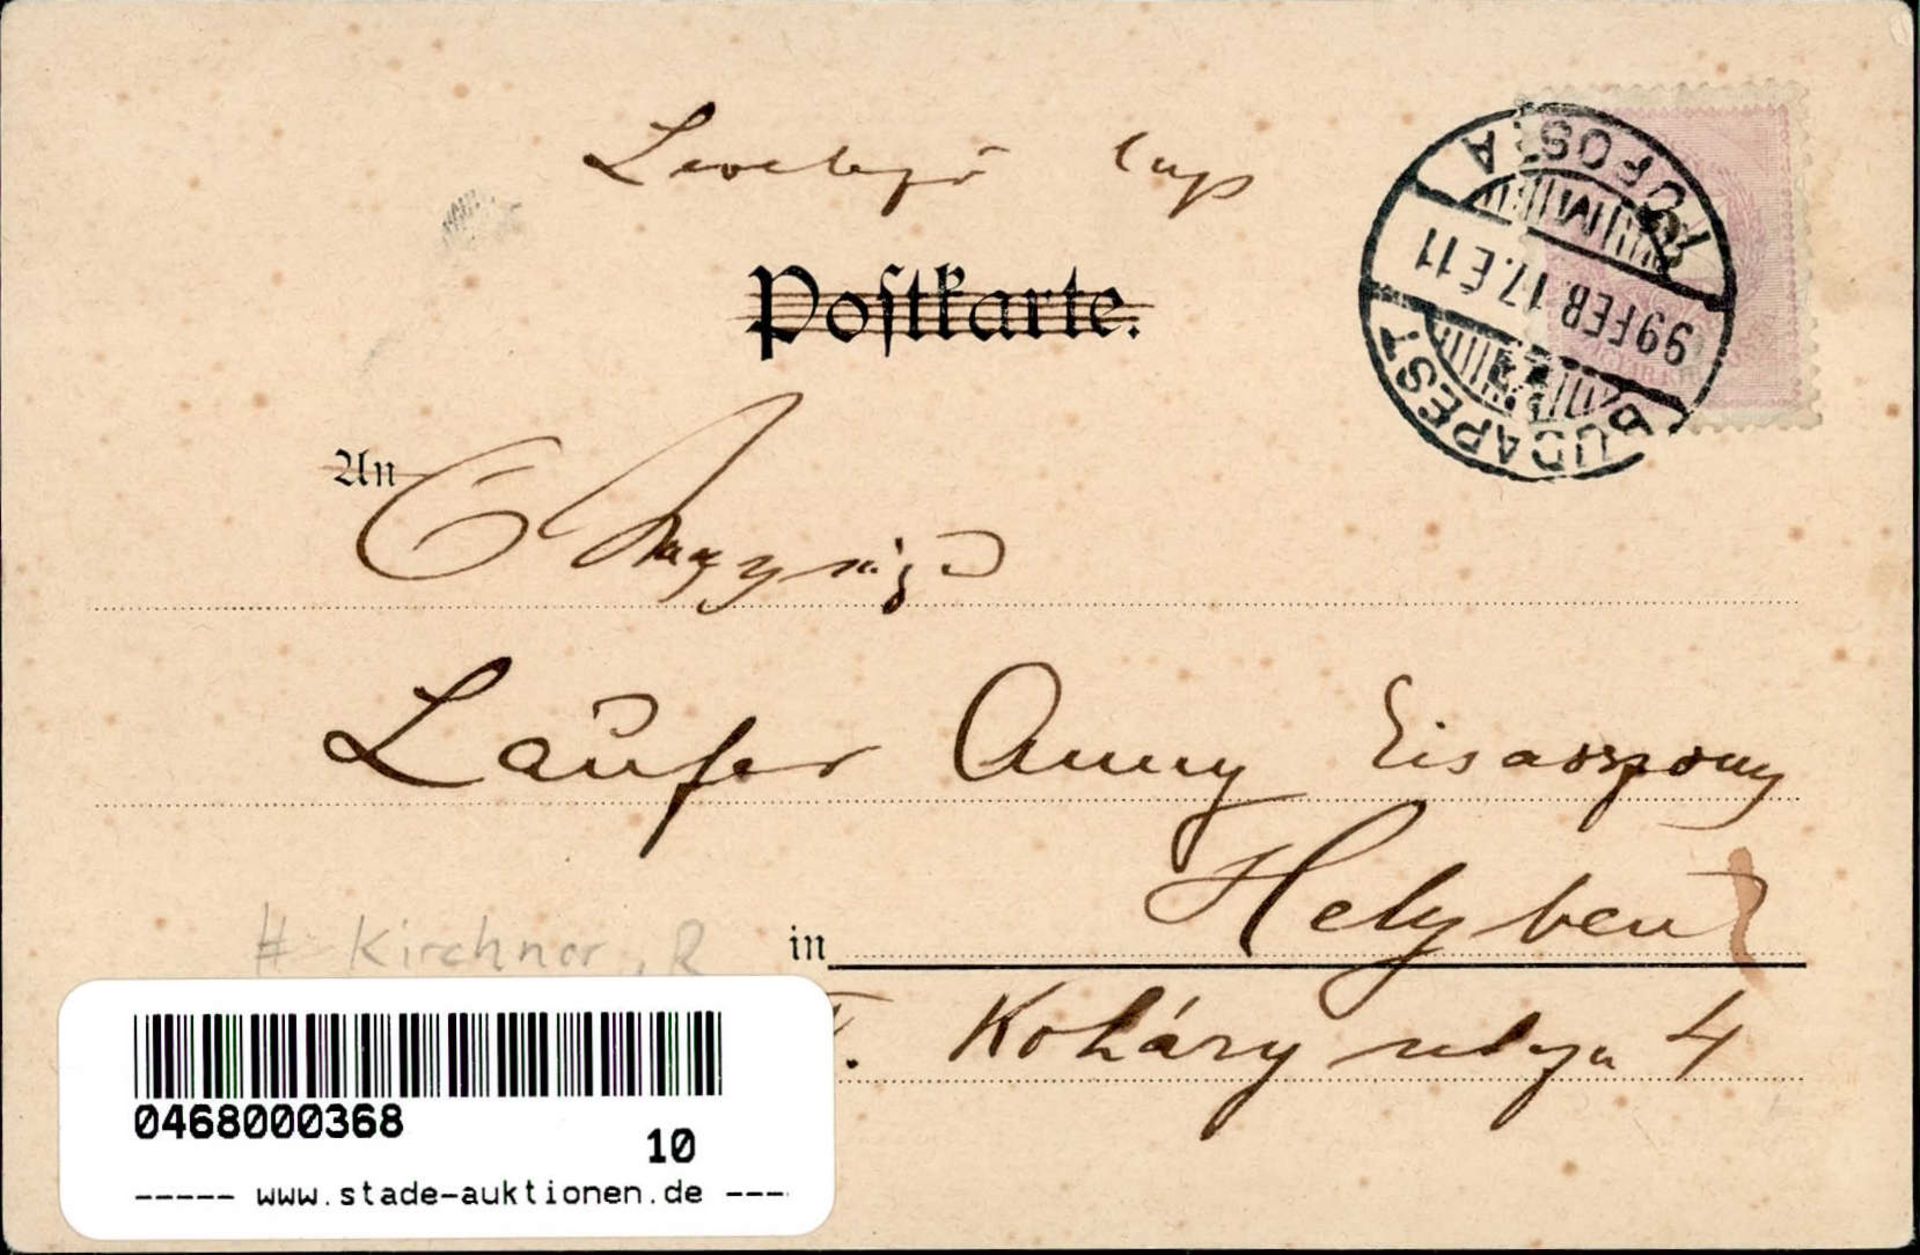 Levelező lap
Postkarte.
BUDAPEST FŐPOSTA
99 FEB 17. E 11
An Nagysád
Läufer Anny Kisasszony
in Helyben
Koháry utcza 4
# Kirchner, R
0468000368
10
----- www.stade-auktionen.de ---